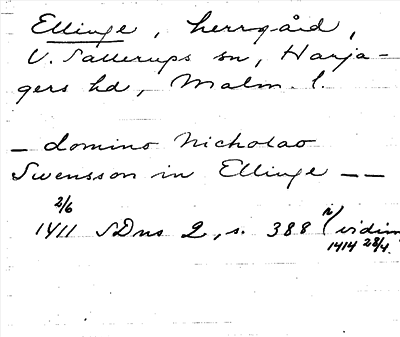 Ellinge, herrgård,
V. Sallerups sn, Harja-
gers hd, Malm. l.
– domino Nicholao
Swensson in Ellinge – –
2/6
1411 SDns 2, s. 388 (vidim
1414 28/4.